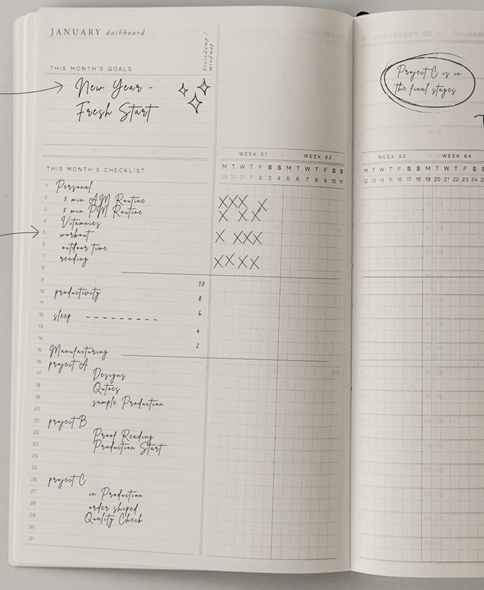 JANUARY dashboard
braindump / mindmap
THIS MONTH'S GOALS
New Year -
Fresh Start
Project C is in
the final stages
WEEK 01 WEEK 02
WEEK 03 WEEK 04
THIS MONTH'S CHECKLIST
M T W T F S S M T W T F S S
M T W T F S S M T W T F S
29 30 31 1 2 3 4 5 6 7 8 9 10 11
12 13 14 15 16 17 18 19 20 21 22 23 24 25
1 Personal
2 5 min AM Routine
3 5 min PM Routine
4 Vitamnies
5 workout
6 outdoor time
7 reading
8
9 10
10 productivity 8
11
12 sleep 6
13 4
14 2
15 Manufacturing
16 project A
17 Designs
18 Qutoes
19 sample Production
20
21 project B
22 Proof Reading
23 Production Start
24
25
26 project C
27 in Production
28 order shiped
29 Quality Check
30
31